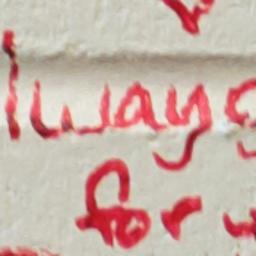 lways
for